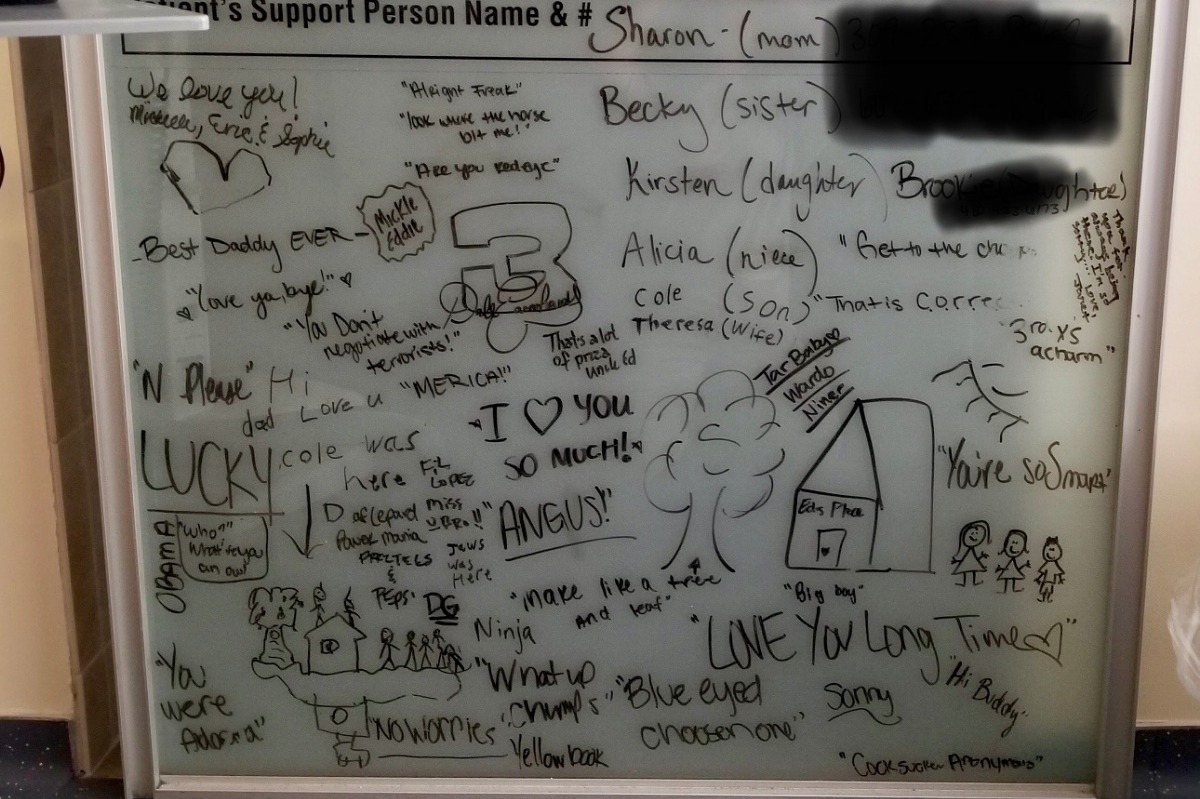 Support Person Name & # Sharon - (mom)
We love you!
Eric & Sophie
"Alright Freak"
"look where the horse
bit me!"
"Are you
Becky (sister)
Kirsten (daughter)
Brook
Best Daddy EVER -
Mickle
Eddie
3
Alicia (niece)
"Get to the
Thank
you for
always being
there. I'm so
sorry... Love,
"Love ya, bye!"
Cole (Son)
"That is Corre
Theresa (Wife)
"3rd
a charm"
"You Don't
negotiate with
terrorists!"
That's a lot
of
uncle Ed
"N Please"
Hi
dad Love u
"MERICA!"
Tar Babye
Wardo
Niner
I ♡ YOU
SO MUCH!
LUCKY
cole was
here
LOPEZ
"You're so Smart"
Def Leppard
Power Mania
PRETZELS
&
PEPS
miss
URRO!!
Jews
was
Here
"ANGUS!"
Eds Place
OBAMA
"Who?"
What're you
can own
DG
Ninja
"make like a tree
and leaf"
"Big boy"
"LOVE You Long Time ♡"
"You
were
"What up
Chumps"
"Blue eyed
choosen one"
Sonny
"Hi Buddy"
"No Worries"
Yellow book
"Cocksucker Anonymous"